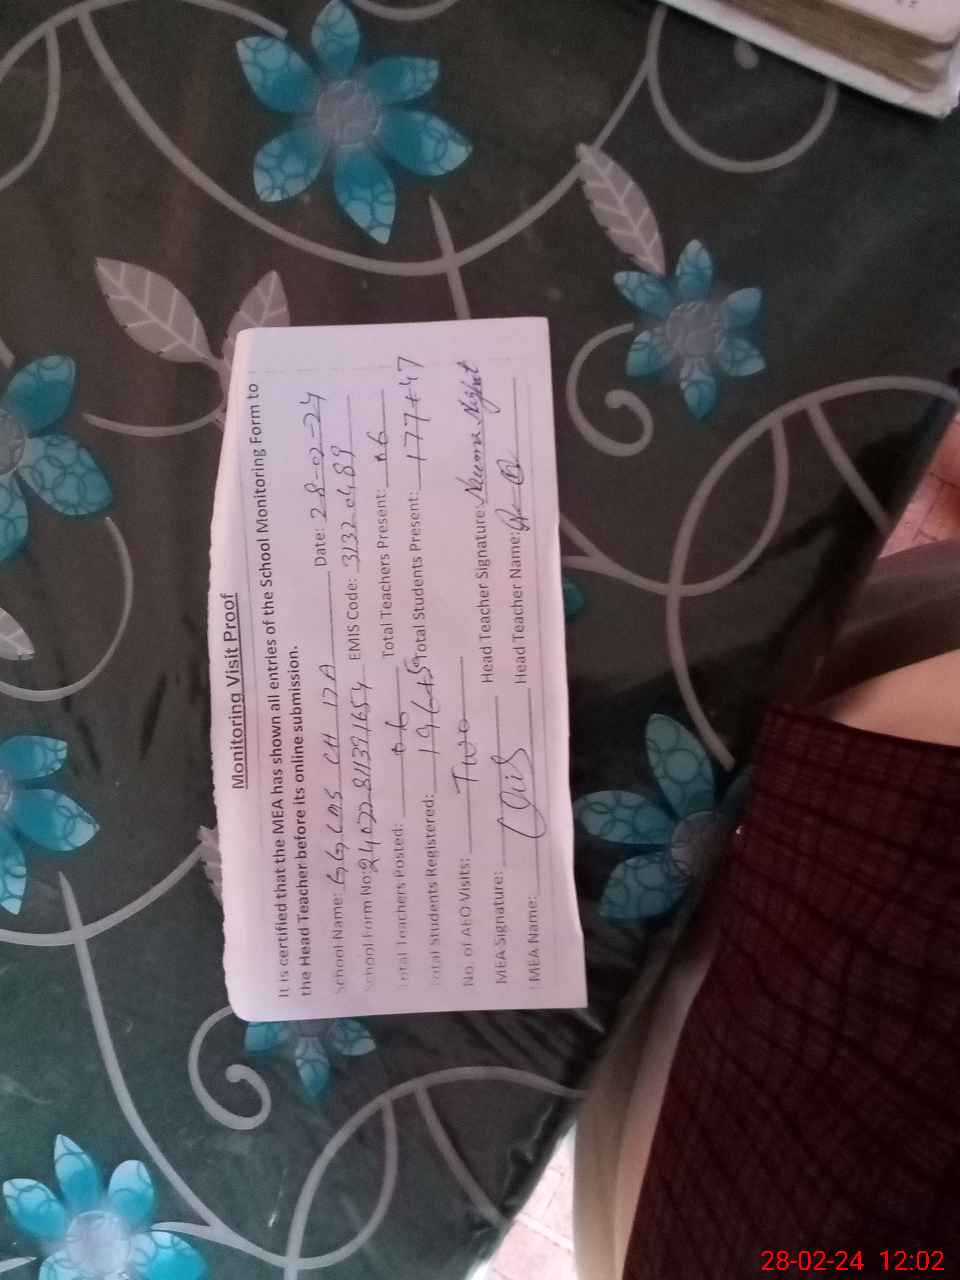 Monitoring Visit Proof
It is certified that the MEA has shown all entries of the School Monitoring Form to
the Head Teacher before its online submission.
School Name: GGCMS CH 17A Date: 28-02-24
School Form No: EMIS Code: 31320489
Total Teachers Posted: 06 Total Teachers Present: 06
Total Students Registered: 196+50 Total Students Present: 177+47
No. of AEO Visits: Two
MEA Signature: Head Teacher Signature:
MEA Name: Head Teacher Name:
28-02-24 12:02